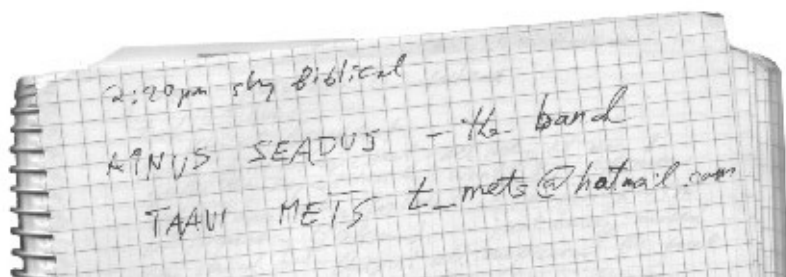 2:20pm sky Biblical
AINUS SEADUS - the band
TAAVI METS t_mets@hotmail.com